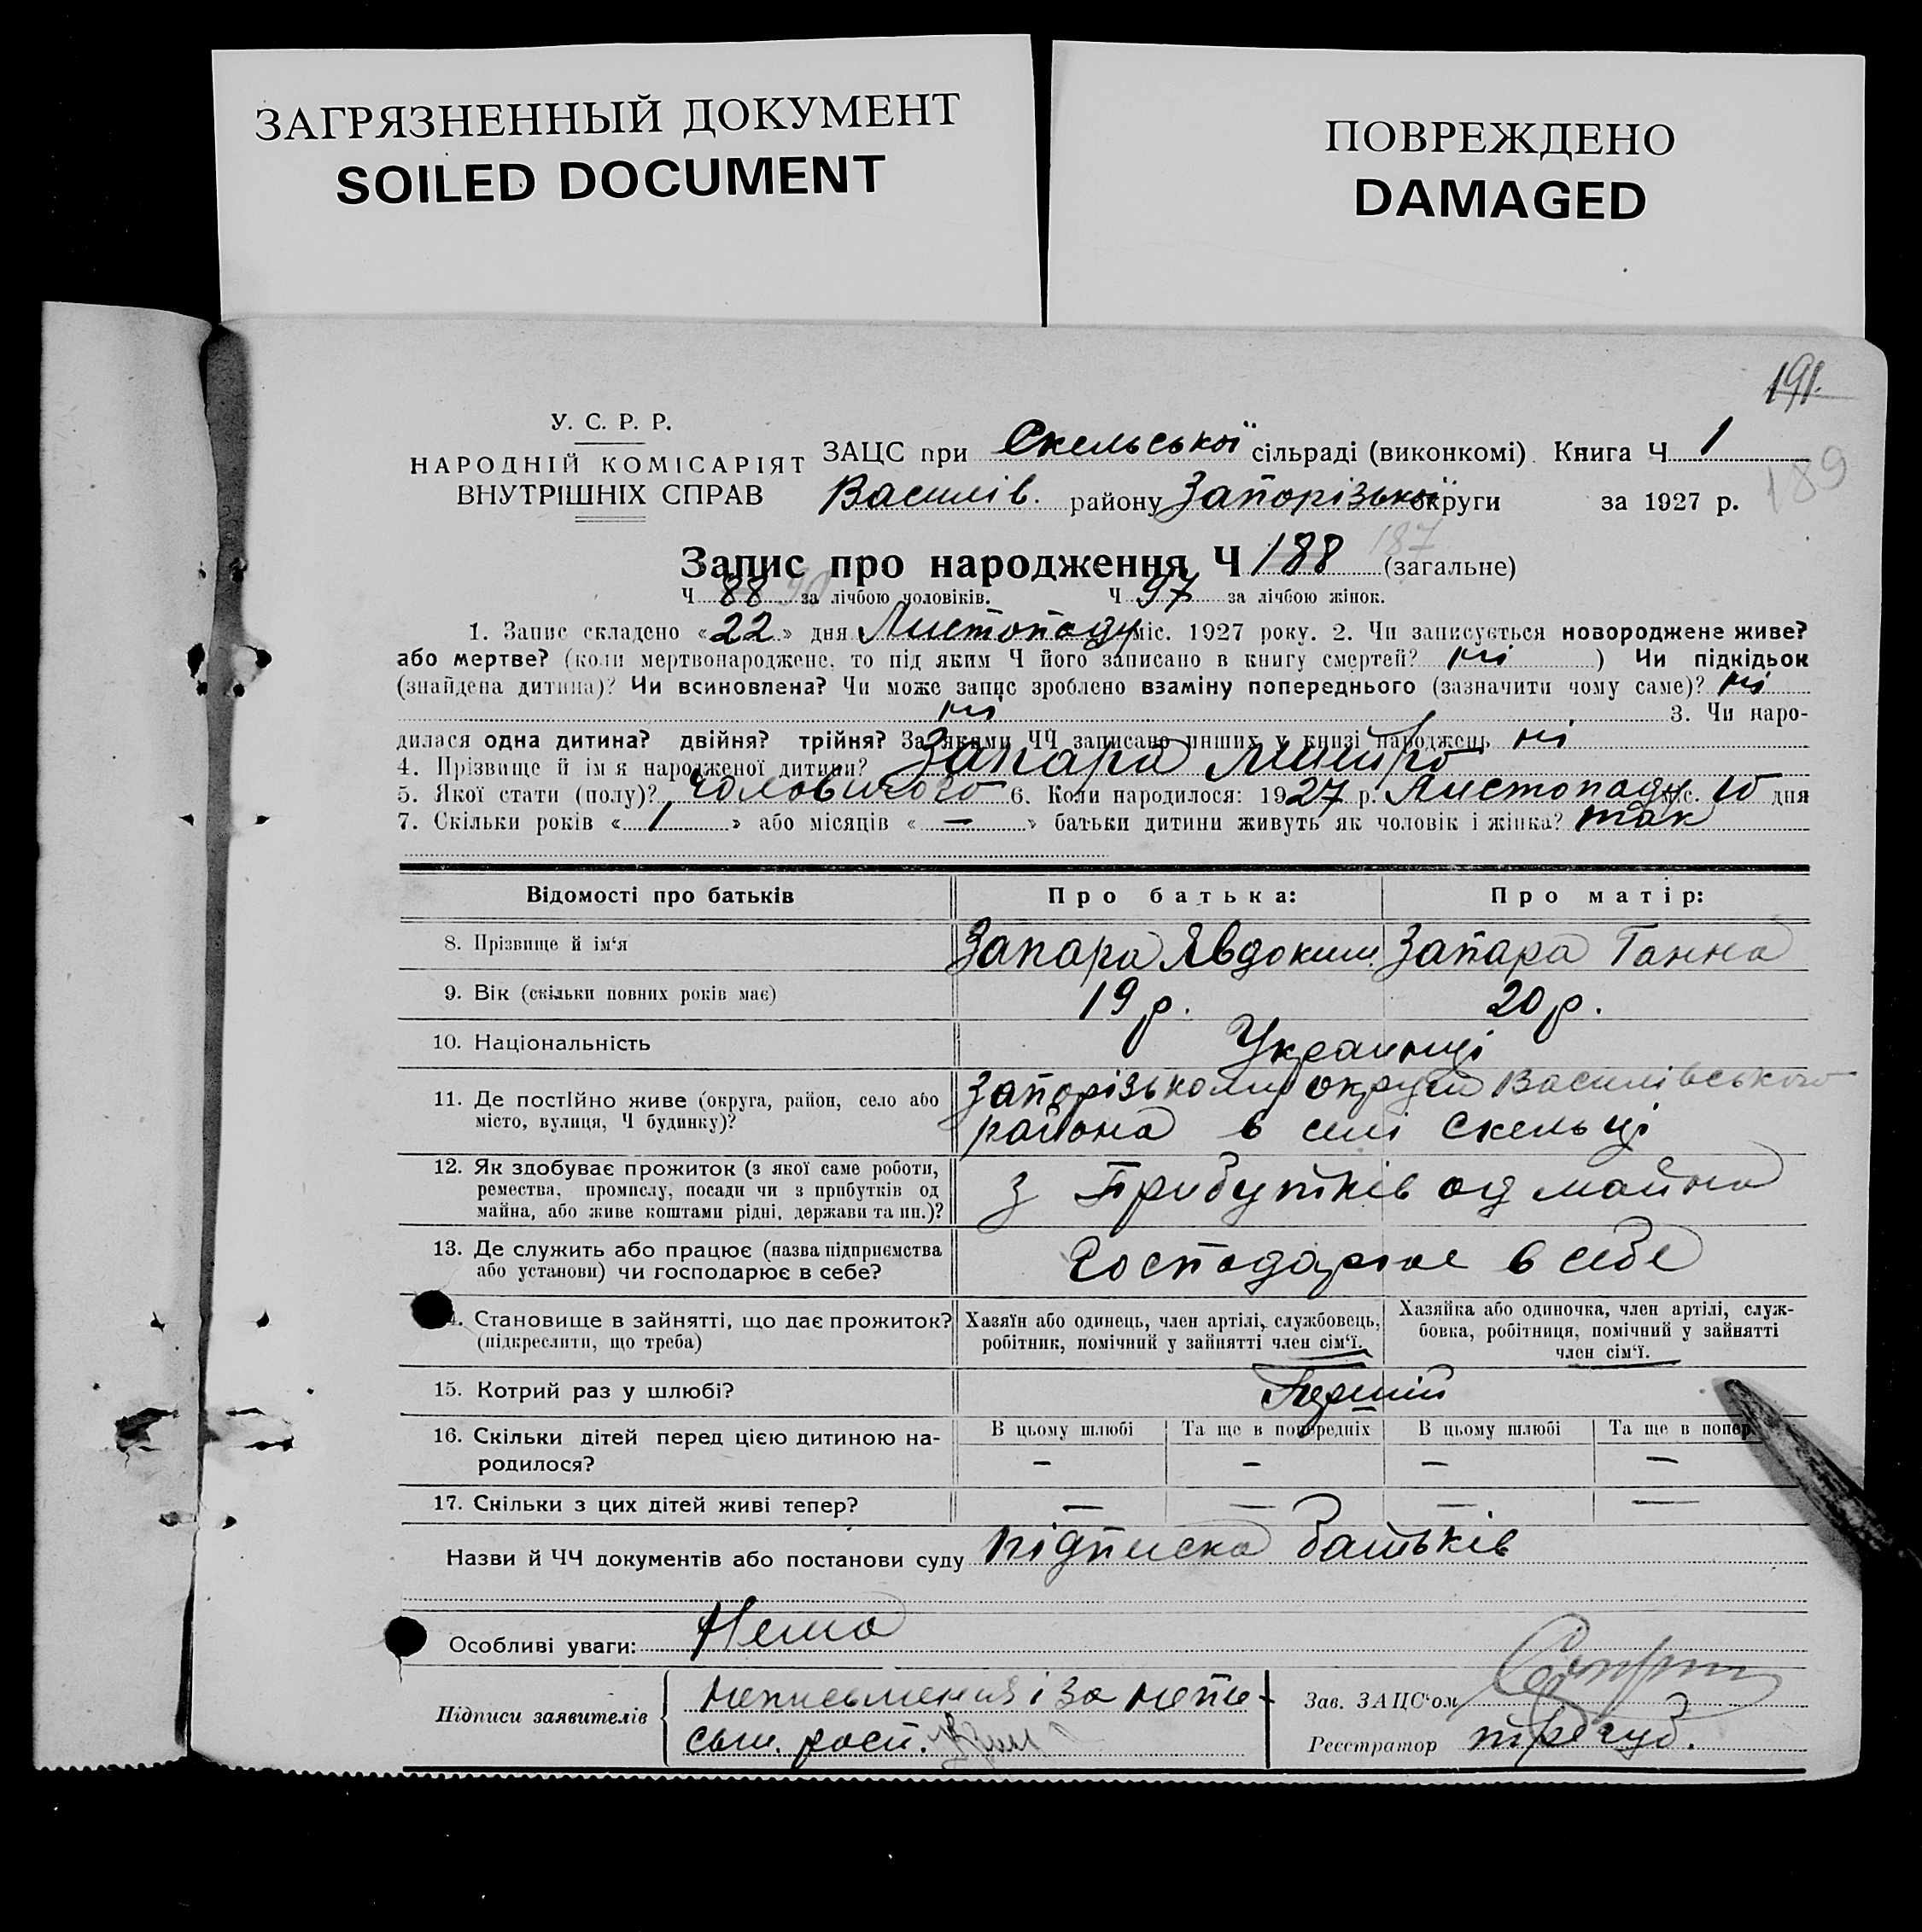 ЗАГРЯЗНЕННЫЙ ДОКУМЕНТ
SOILED DOCUMENT
ПОВРЕЖДЕНО
DAMAGED
191.
189
У. С. Р. Р.
НАРОДНІЙ КОМІСАРІЯТ
ВНУТРІШНІХ СПРАВ
ЗАЦС при Скельської сільраді (виконкомі). Книга Ч 1
Василів. району Запорізької округи за 1927 р.
187
Запис про народження Ч 188 (загальне)
Ч 88 за лічбою чоловіків. Ч 97 за лічбою жінок.
1. Запис складено «22» дня Листопаду міс. 1927 року. 2. Чи записується новороджене живе?
або мертве? (коли мертвонароджене, то під яким Ч його записано в книгу смертей? ні ) Чи підкідьок
(знайдена дитина)? Чи всиновлена? Чи може запис зроблено взаміну попереднього (зазначити чому саме)? ні
ні 3. Чи наро-
дилася одна дитина? двійня? трійня? За якими ЧЧ записано инших у книзі народжень ні
4. Прізвище й ім я народженої дитини? Запара Дмитро
5. Якої стати (полу)? Чоловічого 6. Коли народилося: 1927 р. Листопаду міс. 10 дня
7. Скільки років «1» або місяців «—» батьки дитини живуть як чоловік і жінка? так
Відомості про батьків Про батька: Про матір:
8. Прізвище й ім‘я Запара Явдоким. Запара Ганна
9. Вік (скільки повних років має) 19 р. 20 р.
10. Національність Украинці
11. Де постійно живе (округа, район, село або
місто, вулиця, Ч будинку)?
Запорізькоми округи Василівського
района в селі Скельці
12. Як здобуває прожиток (з якої саме роботи,
ремества, промислу, посади чи з прибутків од
майна, або живе коштами рідні, держави та ин.)?
з Прибутків од майна
13. Де служить або працює (назва підприємства
або установи) чи господарює в себе?
Господарює в себе
4. Становище в зайнятті, що дає прожиток?
(підкреслити, що треба)
Хазяїн або одинець, член артілі, службовець,
робітник, помічний у зайнятті член сім‘ї.
Хазяйка або одиночка, член артілі, служ-
бовка, робітниця, помічний у зайнятті
член сім‘ї.
15. Котрий раз у шлюбі? Перший
16. Скільки дітей перед цією дитиною на-
родилося?
В цьому шлюбі Та ще в попередніх В цьому шлюбі Та ще в попер
— — — —
17. Скільки з цих дітей живі тепер? — — — —
Назви й ЧЧ документів або постанови суду підписка батьків
Особливі уваги: Нема
Підписи заявителів
неписьменния і за непи-
сьм. росп.
Зав. ЗАЦС‘ом
Реєстратор